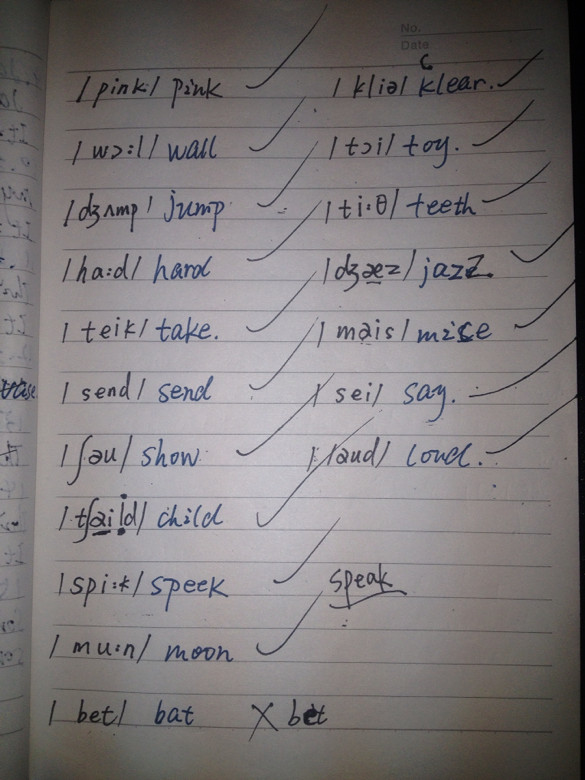 No.
Date
/pink/ pink
/wɔ:l/ wall
/dʒʌmp/ jump
/ha:d/ hard
/teik/ take.
/send/ send
/ʃəu/ show
/tʃaild/ child
/spi:k/ speek
/mu:n/ moon
/bet/ bat X bet
c
/kliə/ klear.
/tɔi/ toy.
/ti:θ/ teeth
/dʒæz/ jazz.
/mais/ mice
/sei/ say.
/laud/ loud.
speak